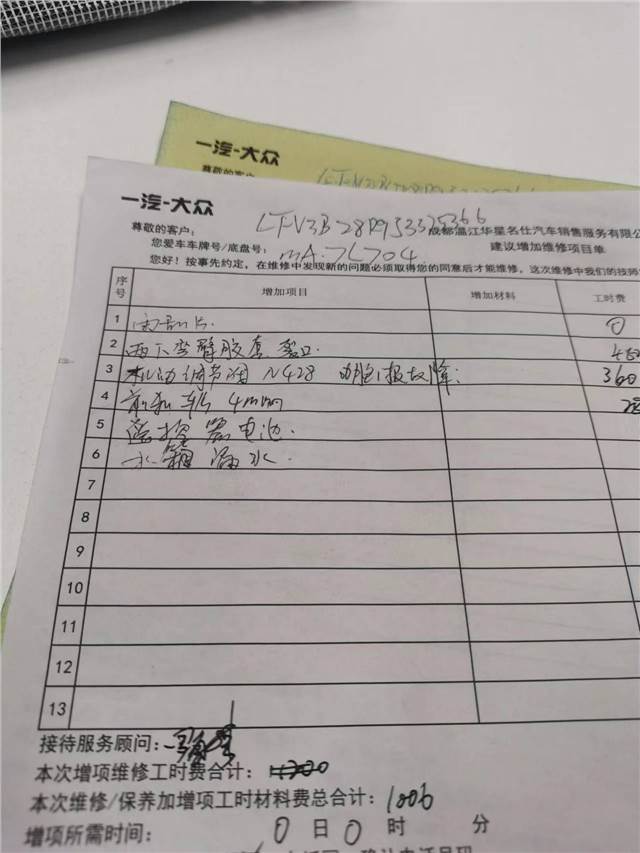 一汽-大众
尊敬的客户:
一汽-大众
尊敬的客户:
成都温江华星名仕汽车销售服务有限公
您爱车车牌号/底盘号: MA·7L704
建议增加维修项目单
您好!按事先约定,在维修中发现新的问题必须取得您的同意后才能维修,这次维修中我们的技师
序号 增加项目 增加材料 工时费
1 雨刮片. 0
2 两下支臂胶套裂口. 
3 机油调节阀 N428 断路报故障; 360
4 前刹车片 4mm
5 遥控器电池.
6 水箱漏水.
7
8
9
10
11
12
13
接待服务顾问:
本次增项维修工时费合计:
本次维修/保养加增项工时材料费总合计: 1006
增项所需时间: 0 日 0 时 分